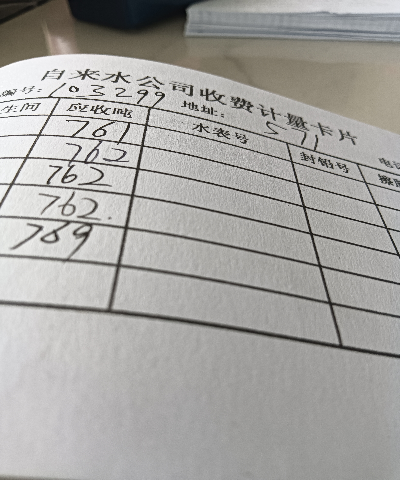 自来水公司收费计量卡片
编号: 103299 地址: 5 11
生间 应收吨 水表号 封铅号
761
762
762
762.
769